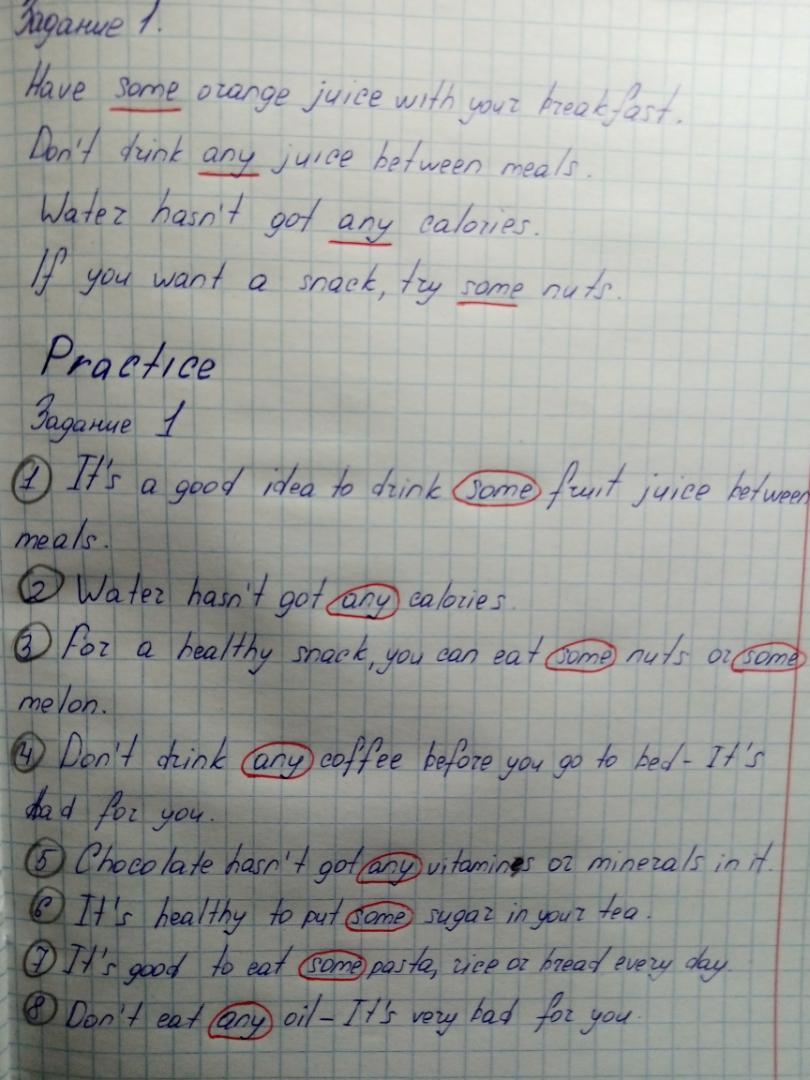 Задание 1.
Have some orange juice with your breakfast.
Don't drink any juice between meals.
Water hasn't got any calories.
If you want a snack, try some nuts.
Practice
Задание 1
1 It's a good idea to drink some fruit juice between
meals.
2 Water hasn't got any calories.
3 For a healthy snack, you can eat some nuts or some
melon.
4 Don't drink any coffee before you go to bed - It's
bad for you.
5 Chocolate hasn't got any vitamins or minerals in it.
6 It's healthy to put some sugar in your tea.
7 It's good to eat some pasta, rice or bread every day.
8 Don't eat any oil - It's very bad for you.